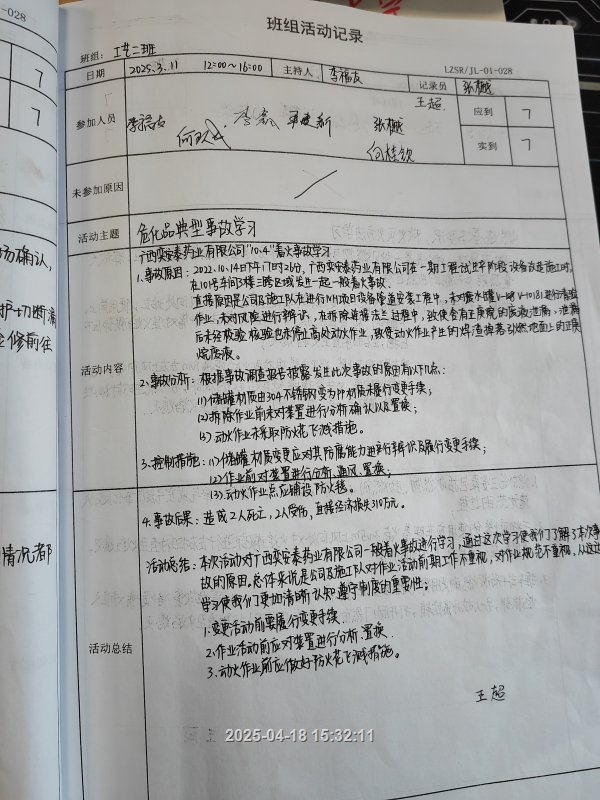 -028
7
7
场确认,
护切断漏
检修前往
情况都
班组活动记录
班组: 工艺二班
LZSR/JL-01-028
日期 2025.3.11 12:00~16:00 主持人 李福友 记录员 张樾
参加人员 李福友 李鑫 张樾 王超 应到 7
何桂钦 实到 7
未参加原因
活动主题 危化品典型事故学习
广西奕安泰药业有限公司"10.4"着火事故学习
活动内容
1.事故原因: 2022.10.14日下午17时26分, 广西奕安泰药业有限公司在一期工程 阶段设备改造施工时,
在101号车间3楼三跨区域发生一起一般着火事故.
直接原因是公司及施工队在进行NH项目设备管道安装工程中, 未对废水罐V- V-10181进行清洗
作业, 未对风险进行辨识, 在拆除 法兰过程中, 致使含有正庚烷的废液泄漏, 泄漏
后未经核验 也未停止高处动火作业, 致使动火作业产生的焊渣掉落引燃地面上的正庚
烷废液。
2.事故分析: 根据事故调查报告披露发生此次事故的原因有以下几点:
(1)储罐材质由304不锈钢变为PP材质未履行变更手续;
(2)拆除作业前未对装置进行分析确认以及置换;
(3)动火作业未采取防火花飞溅措施。
3.控制措施: (1)储罐材质变更应对其防腐能力进行辨识及履行变更手续;
(2)作业前对装置进行分析、通风、置换;
(3)动火作业点应铺设防火毯。
4.事故后果: 造成2人死亡, 2人受伤, 直接经济损失310万元。
活动总结
活动总结: 本次活动对广西奕安泰药业有限公司一般着火事故进行学习, 通过这次学习使我们了解了本次事
故的原因, 总体来说是公司及施工队对作业活动前期工作不重视, 对作业规范不重视, 从这次
学习使我们更加清晰认知遵守制度的重要性;
1.变更活动前要履行变更手续
2.作业活动前应对装置进行分析、置换.
3.动火作业前应做好防火花飞溅措施。
王超
2025-04-18 15:32:11